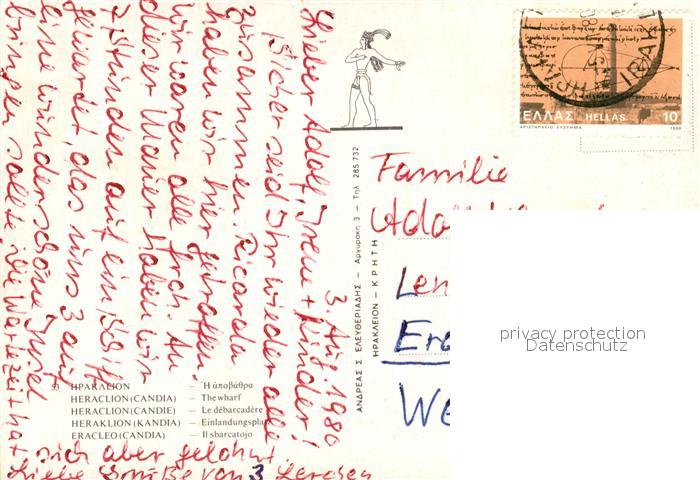 3. Aug. 1980
Lieber Adolf, Irene + Kinder!
Sicher seid Ihr wieder alle
zusammen. Ricarda
haben wir hier getroffen.
wir waren alle
dieser Mauer haben wir
Stunden auf ein Schiff
gewartet, das uns 3 auf
eine wunderschöne Insel
bringen sollte. Die Wartezeit hat
sich aber gelohnt.
Liebe Grüße von 3
Familie
ΕΛΛΑΣ HELLAS 10
ΑΡΙΣΤΑΡΧΕΙΟ ΣΥΣΤΗΜΑ 1980
ΑΝΔΡΕΑΣ Σ ΕΛΕΥΘΕΡΙΑΔΗΣ — Αργυράκη 3 — Τηλ. 285 732
ΗΡΑΚΛΕΙΟΝ - ΚΡΗΤΗ
53 ΗΡΑΚΛΕΙΟΝ — Ἡ ἀποβάθρα
HERACLION (CANDIA) — The wharf
HERACLION (CANDIE) — Le débarcadère
HERAKLION (KANDIA) — Einlandungspla
ERACLEO (CANDIA) — Il sbarcatojo
privacy protection
Datenschutz